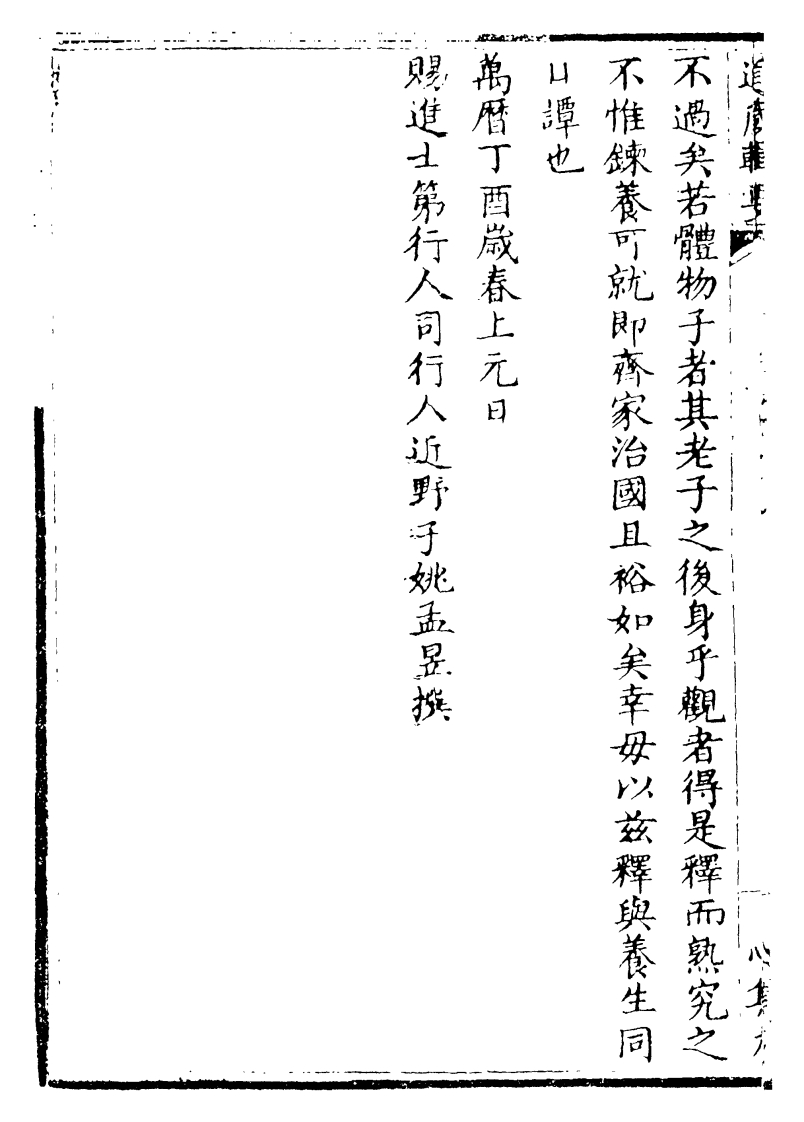 不遇矣若體物子者其老子之後身乎觀者得是釋而熟究之
不惟鍊養可就即齊家治國且裕如矣幸毋以茲釋與養生同
日譚也
萬曆丁酉歲春上元日
賜進士第行人司行人近野子姚孟昱撰